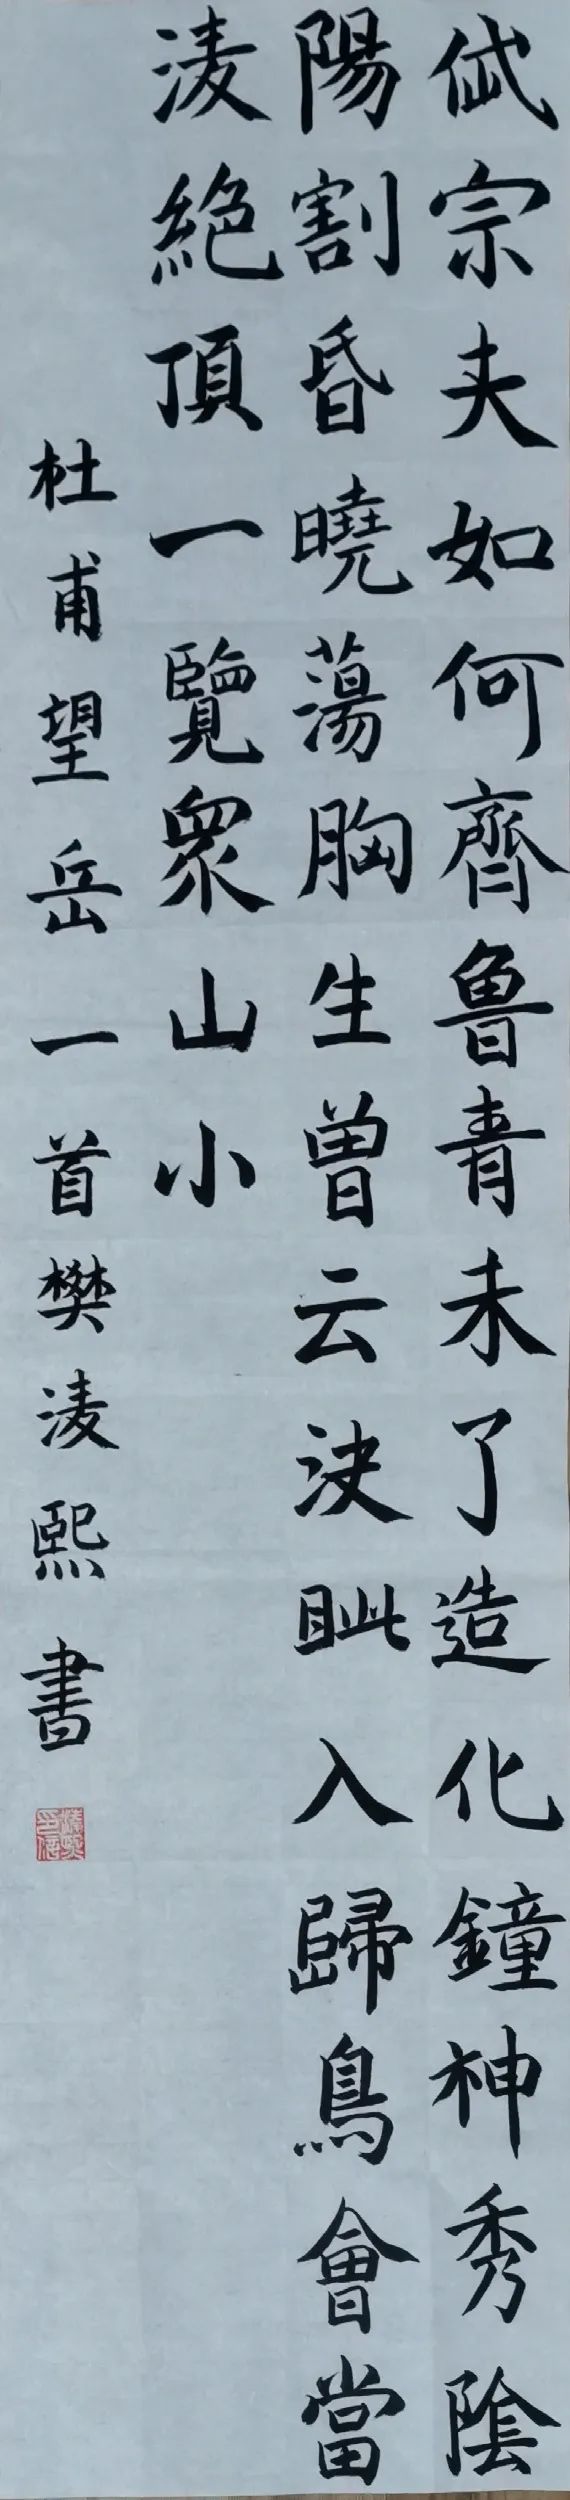 岱宗夫如何齊魯青未了造化鐘神秀陰
陽割昏曉蕩胸生曾云決眦入歸鳥會當
凌絕頂一覽眾山小
杜甫望岳一首樊凌熙書